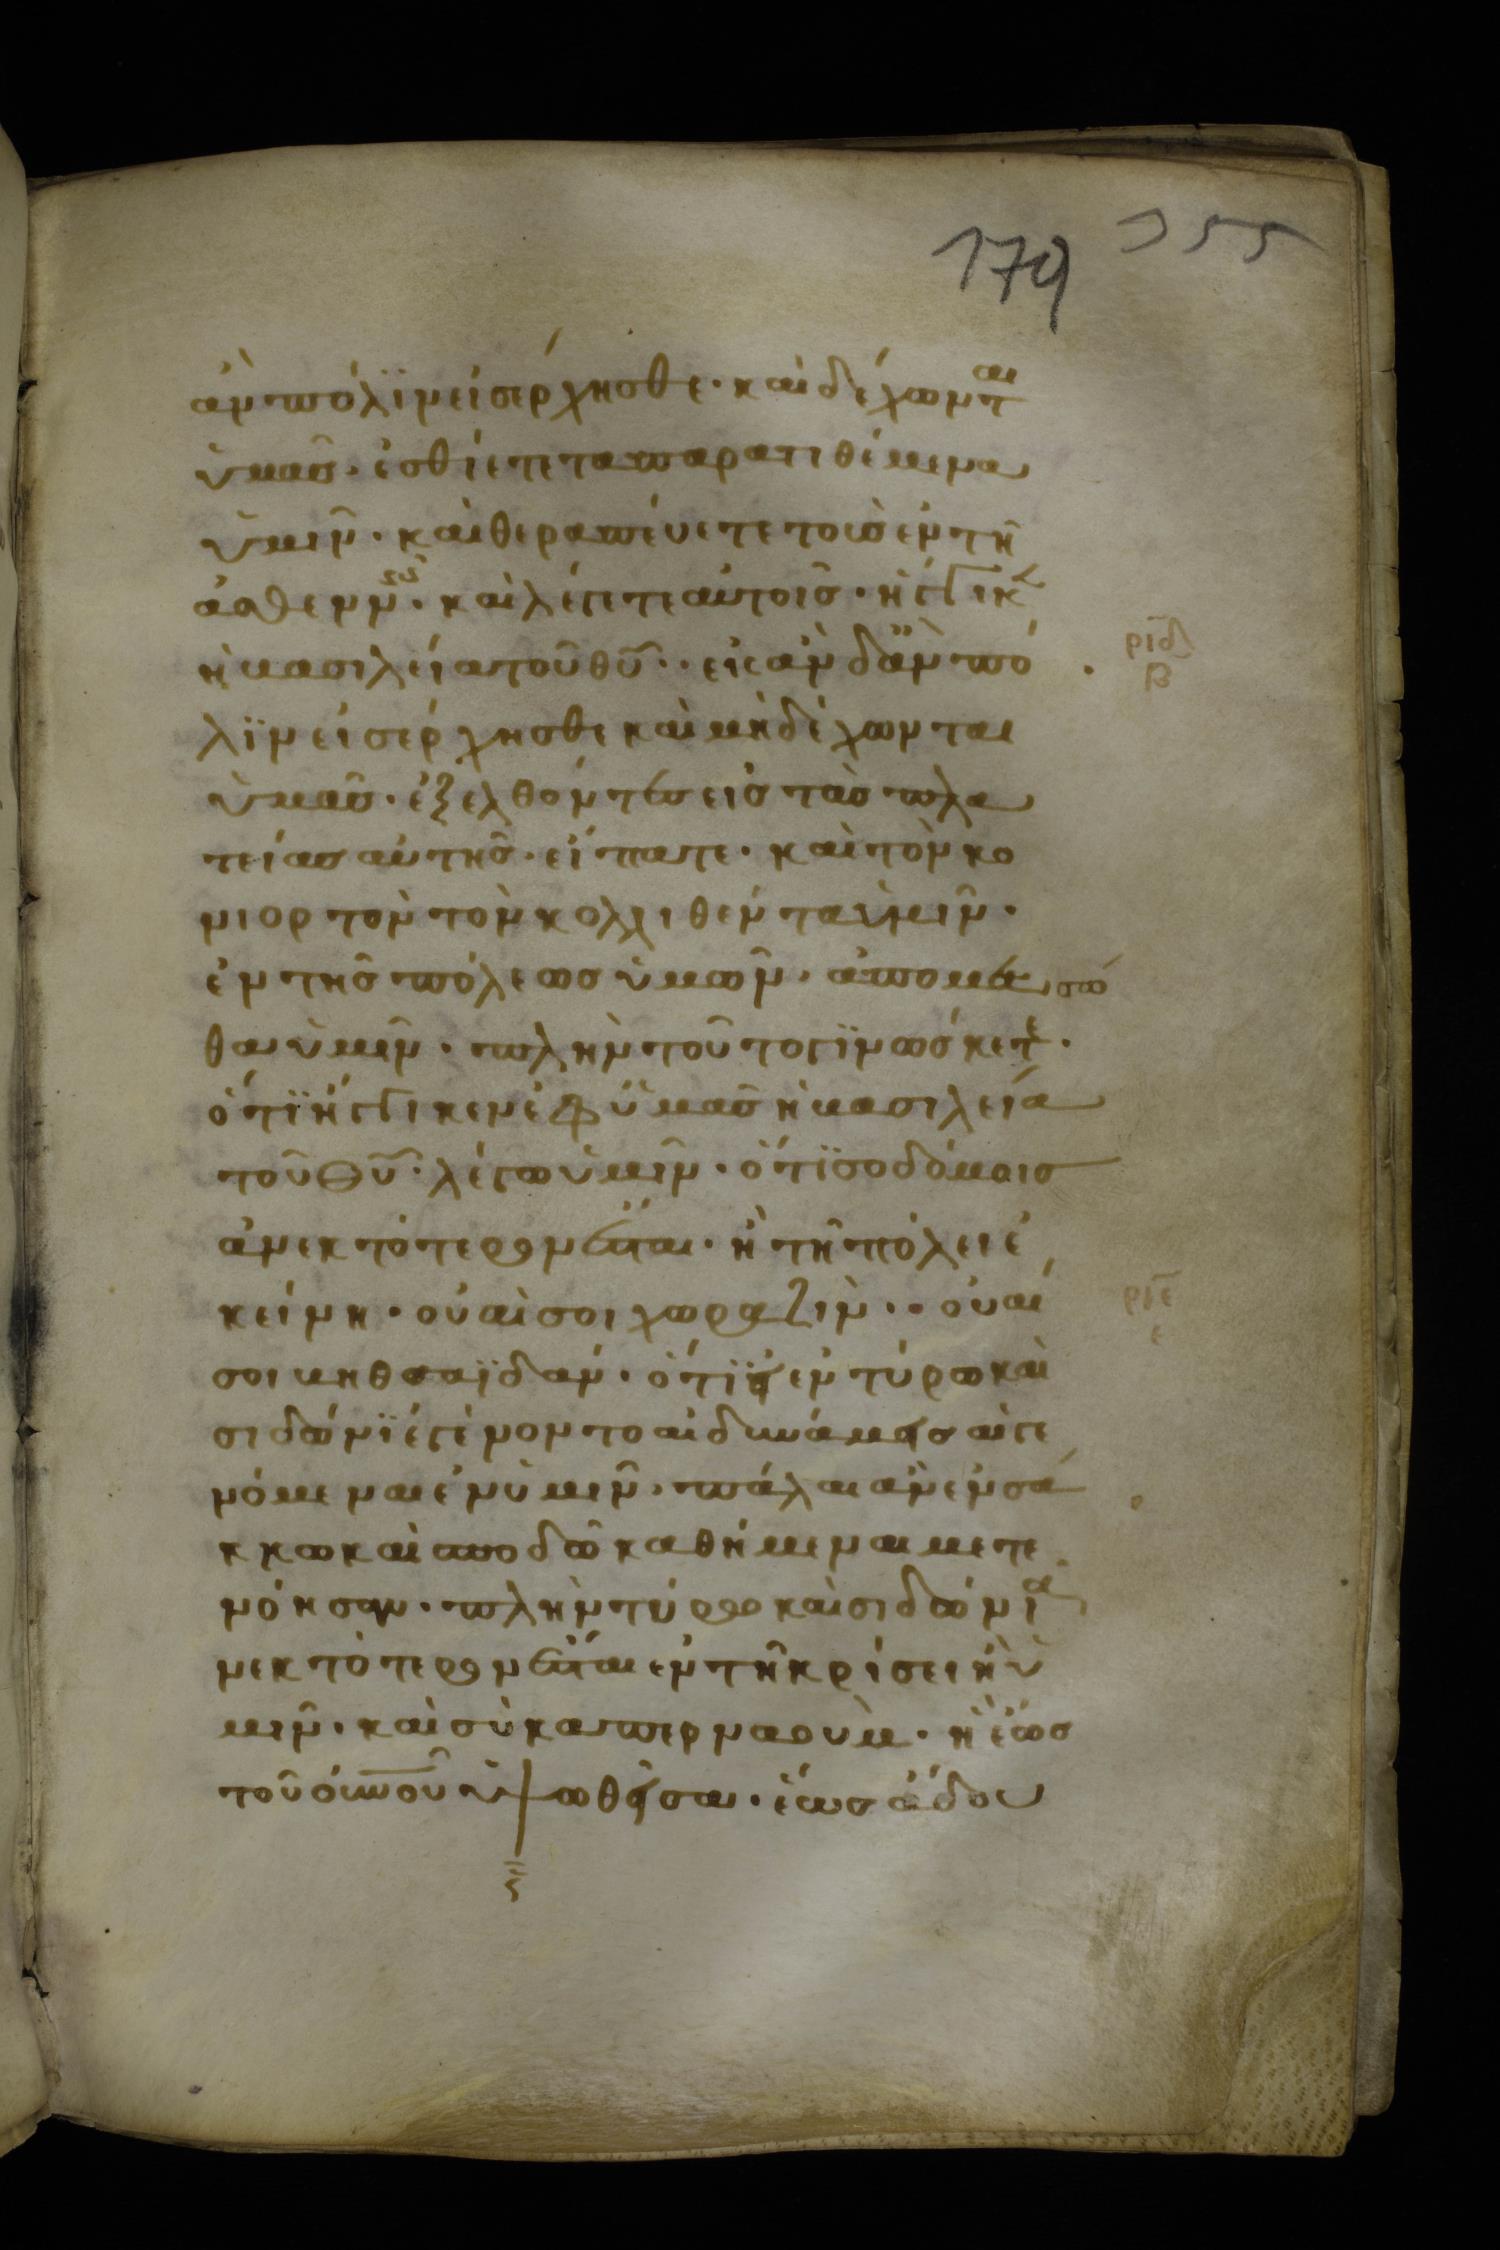 179 355
ἀν πόλϊν εἰσέρχησθε · καὶ δέχωντ(αι)
ὑμᾶσ · ἐσθίετε τα παρατιθέμενα
ὑμῖν · καὶ θεραπεύετε τοὺσ ἐν τῆ
ἀσθενν(οὺσ) · καὶ λέγετε αὐτοῖσ · ἤγγικ(εν)
ἡ βασιλεία τοῦ θῦ · · εἰσ ἀν δἂν πό
ριδ
β
λϊν εἰσέρχησθε καὶ μὴ δέχωνται
ὑμᾶσ · ἐξελθόντεσ εἰσ τὰσ πλα
τείασ αὐτῆσ · εἴπατε · καὶ τὸν κο
νιορτὸν τὸν κολλιθέντα ὑμῖν ·
ἐκ τῆσ πόλεωσ ὑμῶν · ἀπομασσό
θα ὑμῖν · πλὴν τοῦτο γϊνώσκετε ·
ὅτϊ ἤγγικεν ἐφ ὑμᾶσ ἡ βασιλεία
τοῦ θῦ · λέγω ὑμῖν · ὅτϊ σοδόμοισ
ἀνεκτότερον ἔσται · ἢ τῆ πόλει ἐ
κείνη · οὐαὶ σοι χωραζὶν · · οὐαί
ριε
ε
σοι βηθσαϊδάν · ὅτϊ εἰ ἐν τύρω καὶ
σιδώνϊ ἐγένοντο αἱ δυνάμεισ αἱ γε
νόμεναι ἐν ὑμῖν · πάλαι ἂν ἐν σά
κκω καὶ σποδῶ καθήμεναι μετε
νόησαν · πλὴν τύρω καὶ σιδώνι ἀ
νεκτότερον ἔσται ἐν τῆ κρίσει ἢ ὑ
μῖν · καὶ σὺ καπερναουμ · ἡ ἕωσ
τοῦ οὐνοῦ ὑψωθεῖσα · ἕωσ ἅδου